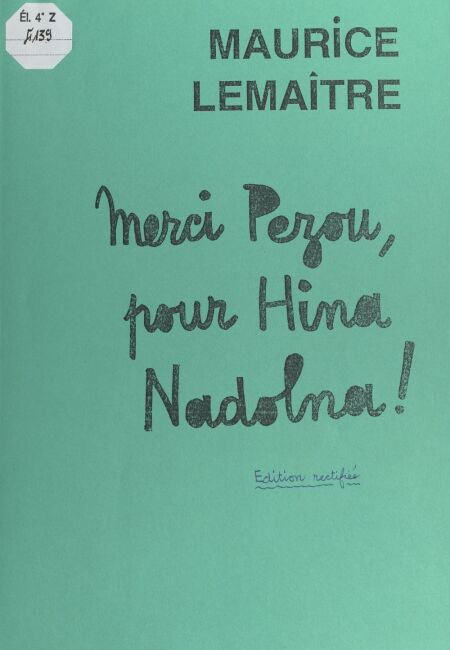 Él. 4° Z
5139
MAURICE
LEMAÎTRE
Merci Pezou,
pour Hina
Nadolna!
Edition rectifiée